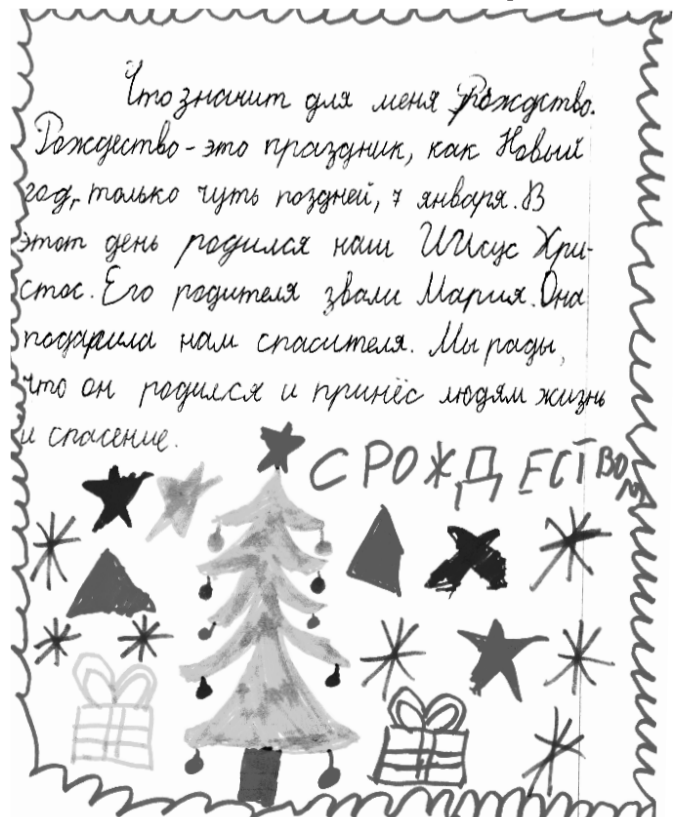 Что значит для меня Рождство.
Рождество - это праздник, как Новый
год, только чуть поздней, 7 января. В
этот день родился наш ИИсус Хри-
стос. Его родителя звали Мария. Она
подарила нам спасителя. Мы рады,
что он родился и принёс людям жизнь
и спасение.
С РОЖДЕСТВОМ